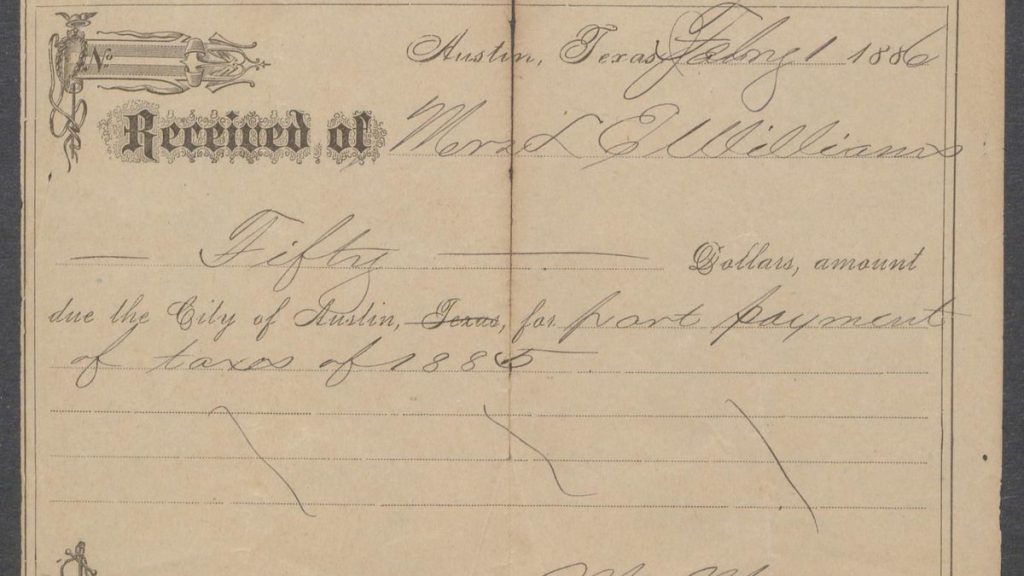 No
Austin, Texas Febry 1 1886
Received of Mrs L E Williams
Fifty Dollars, amount
due the City of Austin, Texas, for part payment
of taxes of 1885